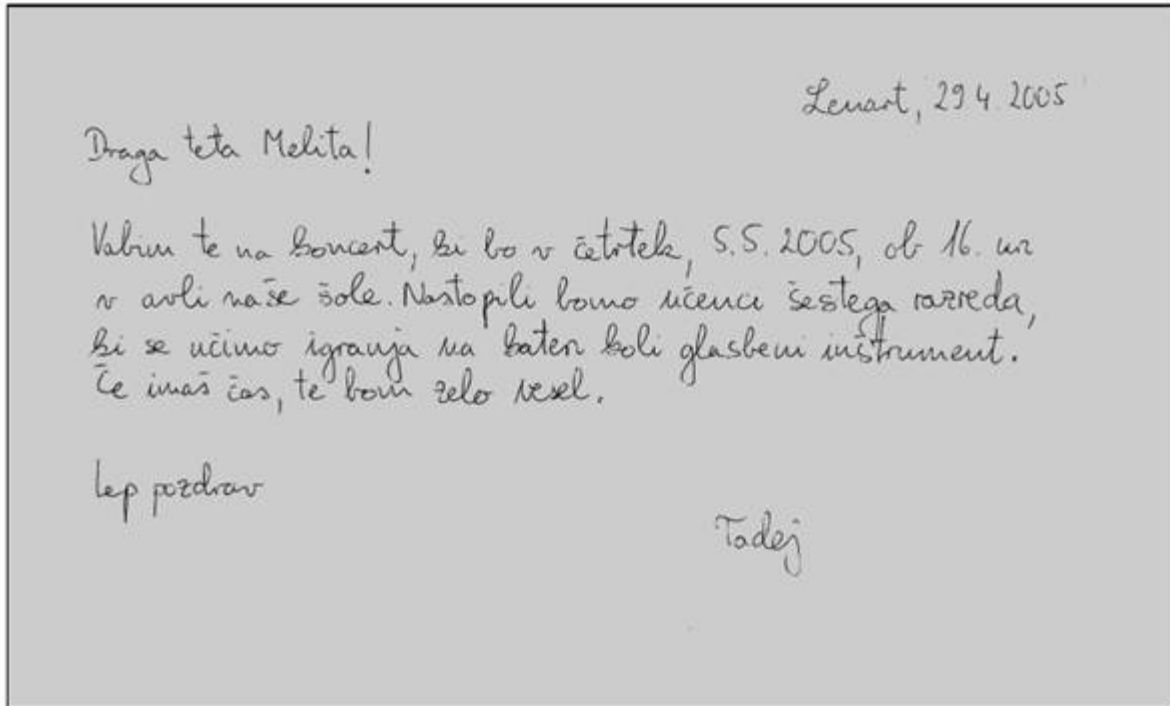 Lenart, 29.4.2005
Draga teta Melita!
Vabim te na koncert, ki bo v četrtek, 5.5.2005, ob 16. uri
v avli naše šole. Nastopili bomo učenci šestega razreda,
ki se učimo igranja na kateri koli glasbeni inštrument.
Če imaš čas, te bom zelo vesel.
Lep pozdrav
Tadej